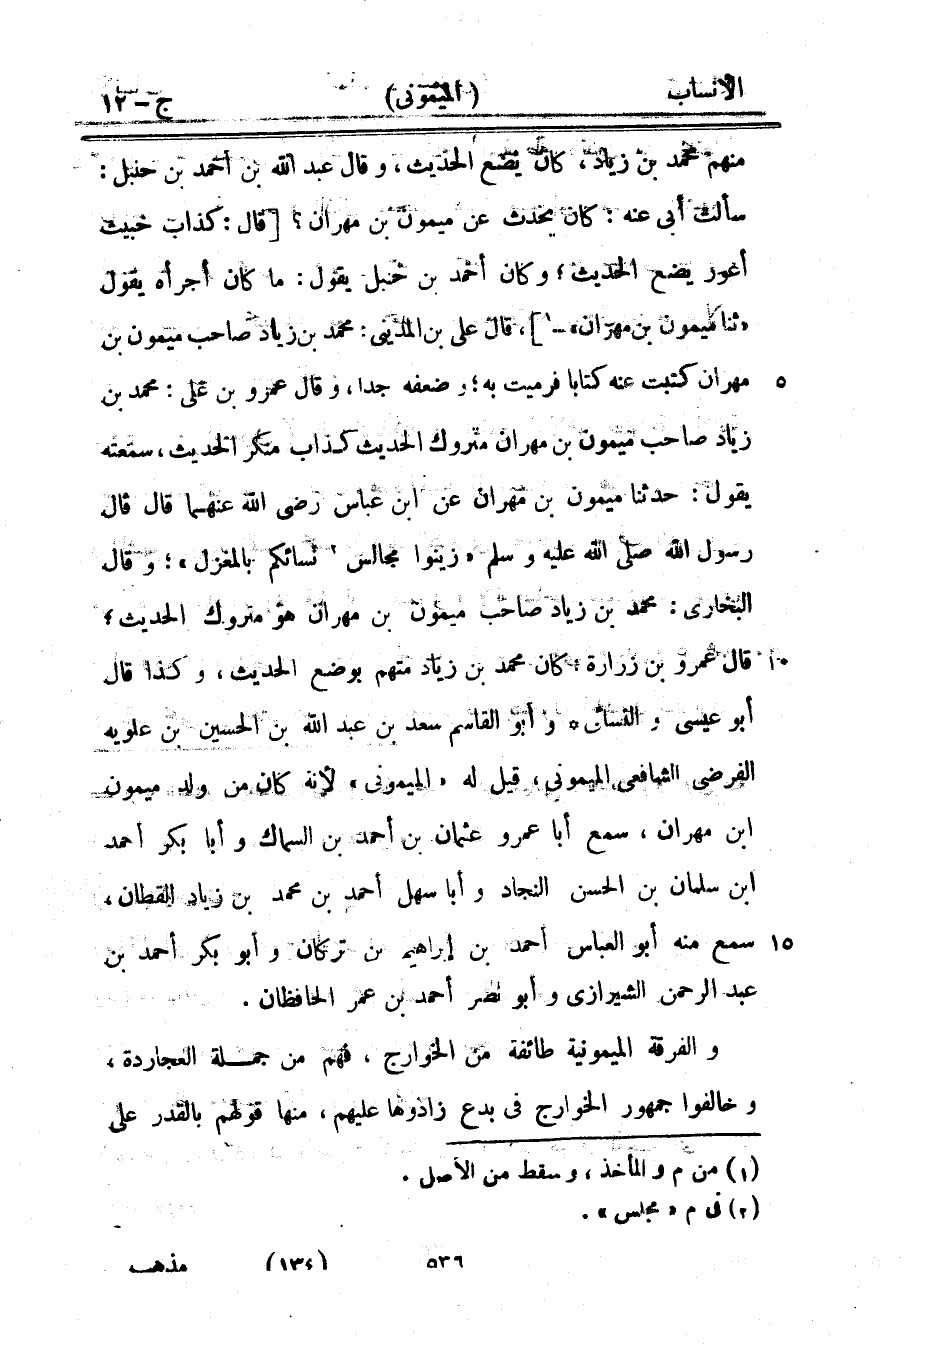 الأنساب (الميمونى) ج - ١٢
منهم محمد بن زياد، كان يضع الحديث، و قال عبد الله بن أحمد بن حنبل :
سألت أبى عنه : كان يحدث عن ميمون بن مهران ؟ [قال : كذاب خبيث
أعور يضع الحديث ؛ و كان أحمد بن حنبل يقول : ما كان أجرأه يقول
«ثنا ميمون بن مهران» - ١]، قال على بن المدينى : محمد بن زياد صاحب ميمون بن
٥ مهران كتبت عنه كتابا فرميت به ؛ و ضعفه جدا ، و قال عمرو بن على : محمد بن
زياد صاحب ميمون بن مهران متروك الحديث كذاب منكر الحديث ، سمعته
يقول : حدثنا ميمون بن مهران عن ابن عباس رضى الله عنهما قال قال
رسول الله صلى الله عليه و سلم «زينوا مجالس ٢ نسائكم بالمغزل» ؛ و قال
البخارى : محمد بن زياد صاحب ميمون بن مهران هو متروك الحديث ؛
١٠ قال عمرو بن زرارة : كان محمد بن زياد متهم بوضع الحديث ، و كذا قال
أبو عيسى و النسائى ه و أبو القاسم سعد بن عبد الله بن الحسين بن علويه
الفرضى الشافعى الميمونى ، قيل له «الميمونى» لأنه كان من ولد ميمون
ابن مهران ، سمع أبا عمرو عثمان بن أحمد بن السماك و أبا بكر أحمد
ابن سلمان بن الحسن النجاد و أبا سهل أحمد بن محمد بن زياد القطان ،
١٥ سمع منه أبو العباس أحمد بن إبراهيم بن تركان و أبو بكر أحمد بن
عبد الرحمن الشيرازى و أبو نصر أحمد بن عمر الحافظان .
و الفرقة الميمونية طائفة من الخوارج ، فهم من جملة العجاردة ،
و خالفوا جمهور الخوارج فى بدع زادوها عليهم ، منها قولهم بالقدر على
(١) من م و المأخذ ، و سقط من الأصل .
(٢) فى م «مجلس» .
٥٣٦ (١٣٤) مذهب